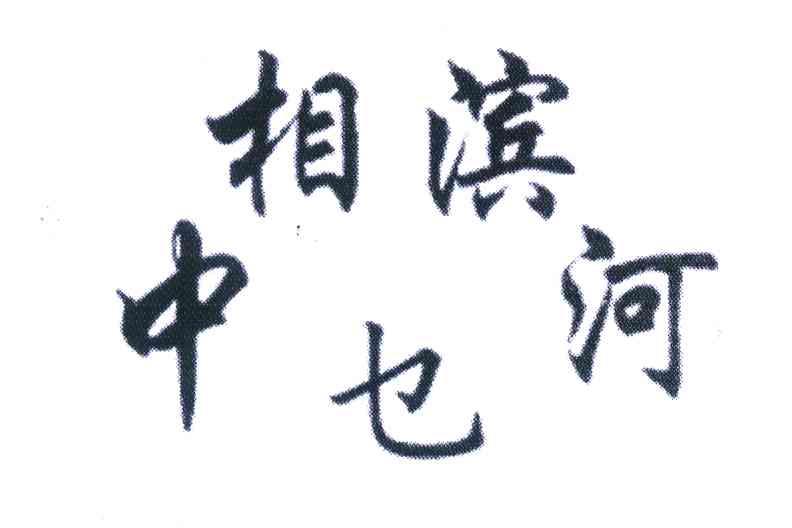 中相滨河
乜